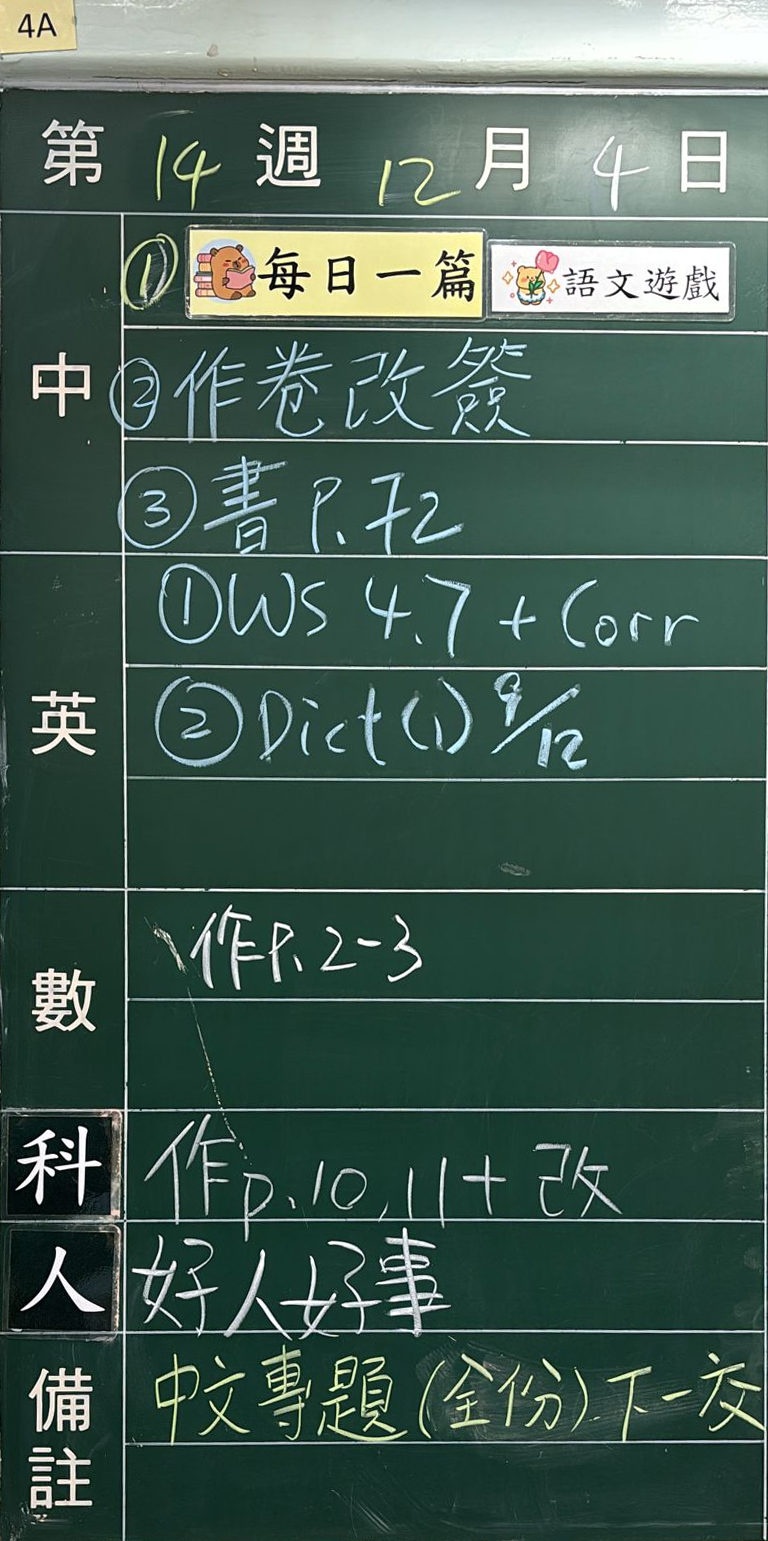 4A
第 14 週 12 月 4 日
中
① 每日一篇 語文遊戲
②作卷改簽
③書 P. 72
英
①WS 4.7 + Corr
②Dict(1) 9/12
數
作P. 2-3
科
作p.10,11+改
人
好人好事
備註
中文專題(全份)下一交